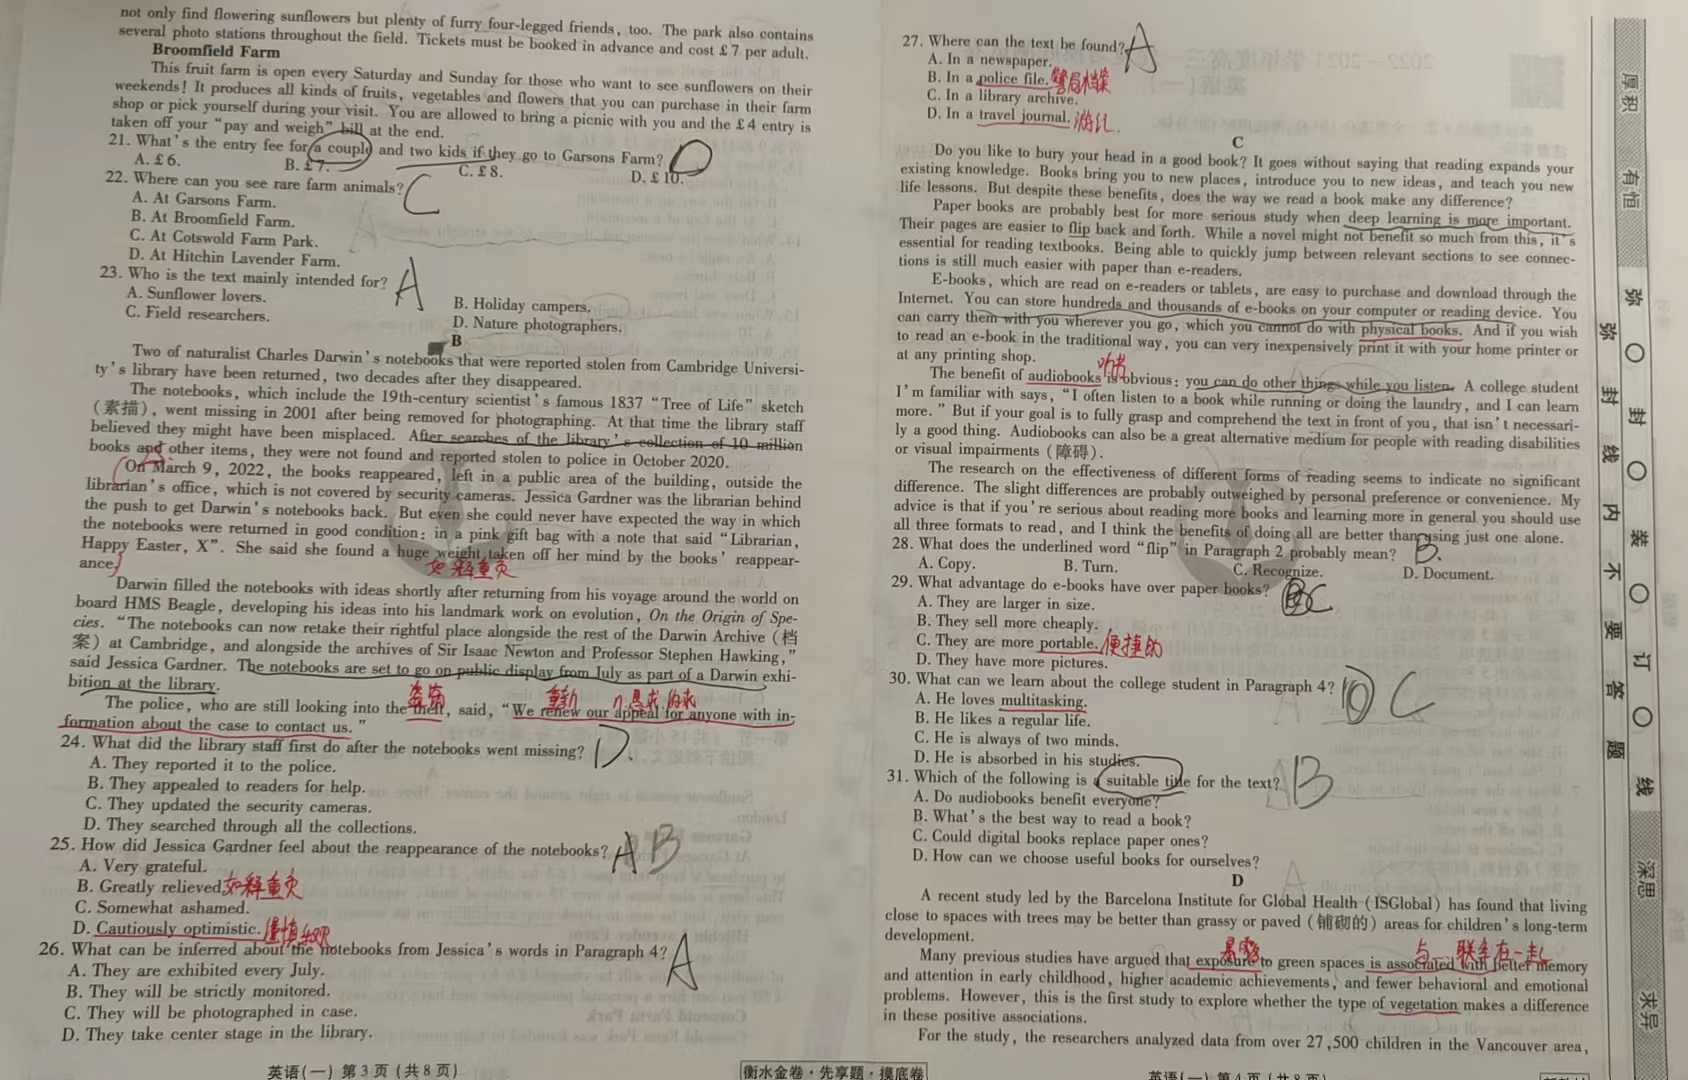 not only find flowering sunflowers but plenty of furry four-legged friends, too. The park also contains
several photo stations throughout the field. Tickets must be booked in advance and cost £7 per adult.
Broomfield Farm
This fruit farm is open every Saturday and Sunday for those who want to see sunflowers on their
weekends! It produces all kinds of fruits, vegetables and flowers that you can purchase in their farm
shop or pick yourself during your visit. You are allowed to bring a picnic with you and the £4 entry is
taken off your “pay and weigh” bill at the end.
21. What's the entry fee for a couple and two kids if they go to Garsons Farm? D
A. £6. B. £7. C. £8. D. £10.
22. Where can you see rare farm animals? C
A. At Garsons Farm.
B. At Broomfield Farm.
C. At Cotswold Farm Park.
D. At Hitchin Lavender Farm.
23. Who is the text mainly intended for? A
A. Sunflower lovers. B. Holiday campers.
C. Field researchers. D. Nature photographers.
B
Two of naturalist Charles Darwin's notebooks that were reported stolen from Cambridge Universi-
ty's library have been returned, two decades after they disappeared.
The notebooks, which include the 19th-century scientist's famous 1837 “Tree of Life” sketch
(素描), went missing in 2001 after being removed for photographing. At that time the library staff
believed they might have been misplaced. After searches of the library's collection of 10 million
books and other items, they were not found and reported stolen to police in October 2020.
On March 9, 2022, the books reappeared, left in a public area of the building, outside the
librarian's office, which is not covered by security cameras. Jessica Gardner was the librarian behind
the push to get Darwin's notebooks back. But even she could never have expected the way in which
the notebooks were returned in good condition: in a pink gift bag with a note that said “Librarian,
Happy Easter, X”. She said she found a huge weight taken off her mind by the books' reappear-
ance.
如释重负
Darwin filled the notebooks with ideas shortly after returning from his voyage around the world on
board HMS Beagle, developing his ideas into his landmark work on evolution, On the Origin of Spe-
cies. “The notebooks can now retake their rightful place alongside the rest of the Darwin Archive (档
案) at Cambridge, and alongside the archives of Sir Isaac Newton and Professor Stephen Hawking,”
said Jessica Gardner. The notebooks are set to go on public display from July as part of a Darwin exhi-
bition at the library.
盗窃 重新 n.恳求
The police, who are still looking into the theft, said, “We renew our appeal for anyone with in-
formation about the case to contact us.”
24. What did the library staff first do after the notebooks went missing? D.
A. They reported it to the police.
B. They appealed to readers for help.
C. They updated the security cameras.
D. They searched through all the collections.
25. How did Jessica Gardner feel about the reappearance of the notebooks? A B
A. Very grateful.
B. Greatly relieved. 如释重负
C. Somewhat ashamed.
D. Cautiously optimistic. 谨慎乐观
26. What can be inferred about the notebooks from Jessica's words in Paragraph 4? A
A. They are exhibited every July.
B. They will be strictly monitored.
C. They will be photographed in case.
D. They take center stage in the library.
英语(一) 第3页(共8页)
衡水金卷·先享题·摸底卷
27. Where can the text be found? A
A. In a newspaper.
B. In a police file. 警局档案
C. In a library archive.
D. In a travel journal. 游记.
C
Do you like to bury your head in a good book? It goes without saying that reading expands your
existing knowledge. Books bring you to new places, introduce you to new ideas, and teach you new
life lessons. But despite these benefits, does the way we read a book make any difference?
Paper books are probably best for more serious study when deep learning is more important.
Their pages are easier to flip back and forth. While a novel might not benefit so much from this, it's
essential for reading textbooks. Being able to quickly jump between relevant sections to see connec-
tions is still much easier with paper than e-readers.
E-books, which are read on e-readers or tablets, are easy to purchase and download through the
Internet. You can store hundreds and thousands of e-books on your computer or reading device. You
can carry them with you wherever you go, which you cannot do with physical books. And if you wish
to read an e-book in the traditional way, you can very inexpensively print it with your home printer or
at any printing shop.
听书
The benefit of audiobooks is obvious: you can do other things while you listen. A college student
I'm familiar with says, “I often listen to a book while running or doing the laundry, and I can learn
more.” But if your goal is to fully grasp and comprehend the text in front of you, that isn't necessari-
ly a good thing. Audiobooks can also be a great alternative medium for people with reading disabilities
or visual impairments (障碍).
The research on the effectiveness of different forms of reading seems to indicate no significant
difference. The slight differences are probably outweighed by personal preference or convenience. My
advice is that if you're serious about reading more books and learning more in general you should use
all three formats to read, and I think the benefits of doing all are better than using just one alone.
28. What does the underlined word “flip” in Paragraph 2 probably mean? B.
A. Copy. B. Turn. C. Recognize. D. Document.
29. What advantage do e-books have over paper books? C
A. They are larger in size.
B. They sell more cheaply.
C. They are more portable. 便捷的
D. They have more pictures.
30. What can we learn about the college student in Paragraph 4? D C
A. He loves multitasking.
B. He likes a regular life.
C. He is always of two minds.
D. He is absorbed in his studies.
31. Which of the following is a suitable title for the text? B
A. Do audiobooks benefit everyone?
B. What's the best way to read a book?
C. Could digital books replace paper ones?
D. How can we choose useful books for ourselves?
D
A recent study led by the Barcelona Institute for Global Health (ISGlobal) has found that living
close to spaces with trees may be better than grassy or paved (铺砌的) areas for children's long-term
development.
暴露 与 联系在一起
Many previous studies have argued that exposure to green spaces is associated with better memory
and attention in early childhood, higher academic achievements, and fewer behavioral and emotional
problems. However, this is the first study to explore whether the type of vegetation makes a difference
in these positive associations.
For the study, the researchers analyzed data from over 27,500 children in the Vancouver area,
英语(一) 第4页(共8页)
厚积 有恒 深思 求异
弥 封 线 内 不 要 答 题
弥 封 装 订 线